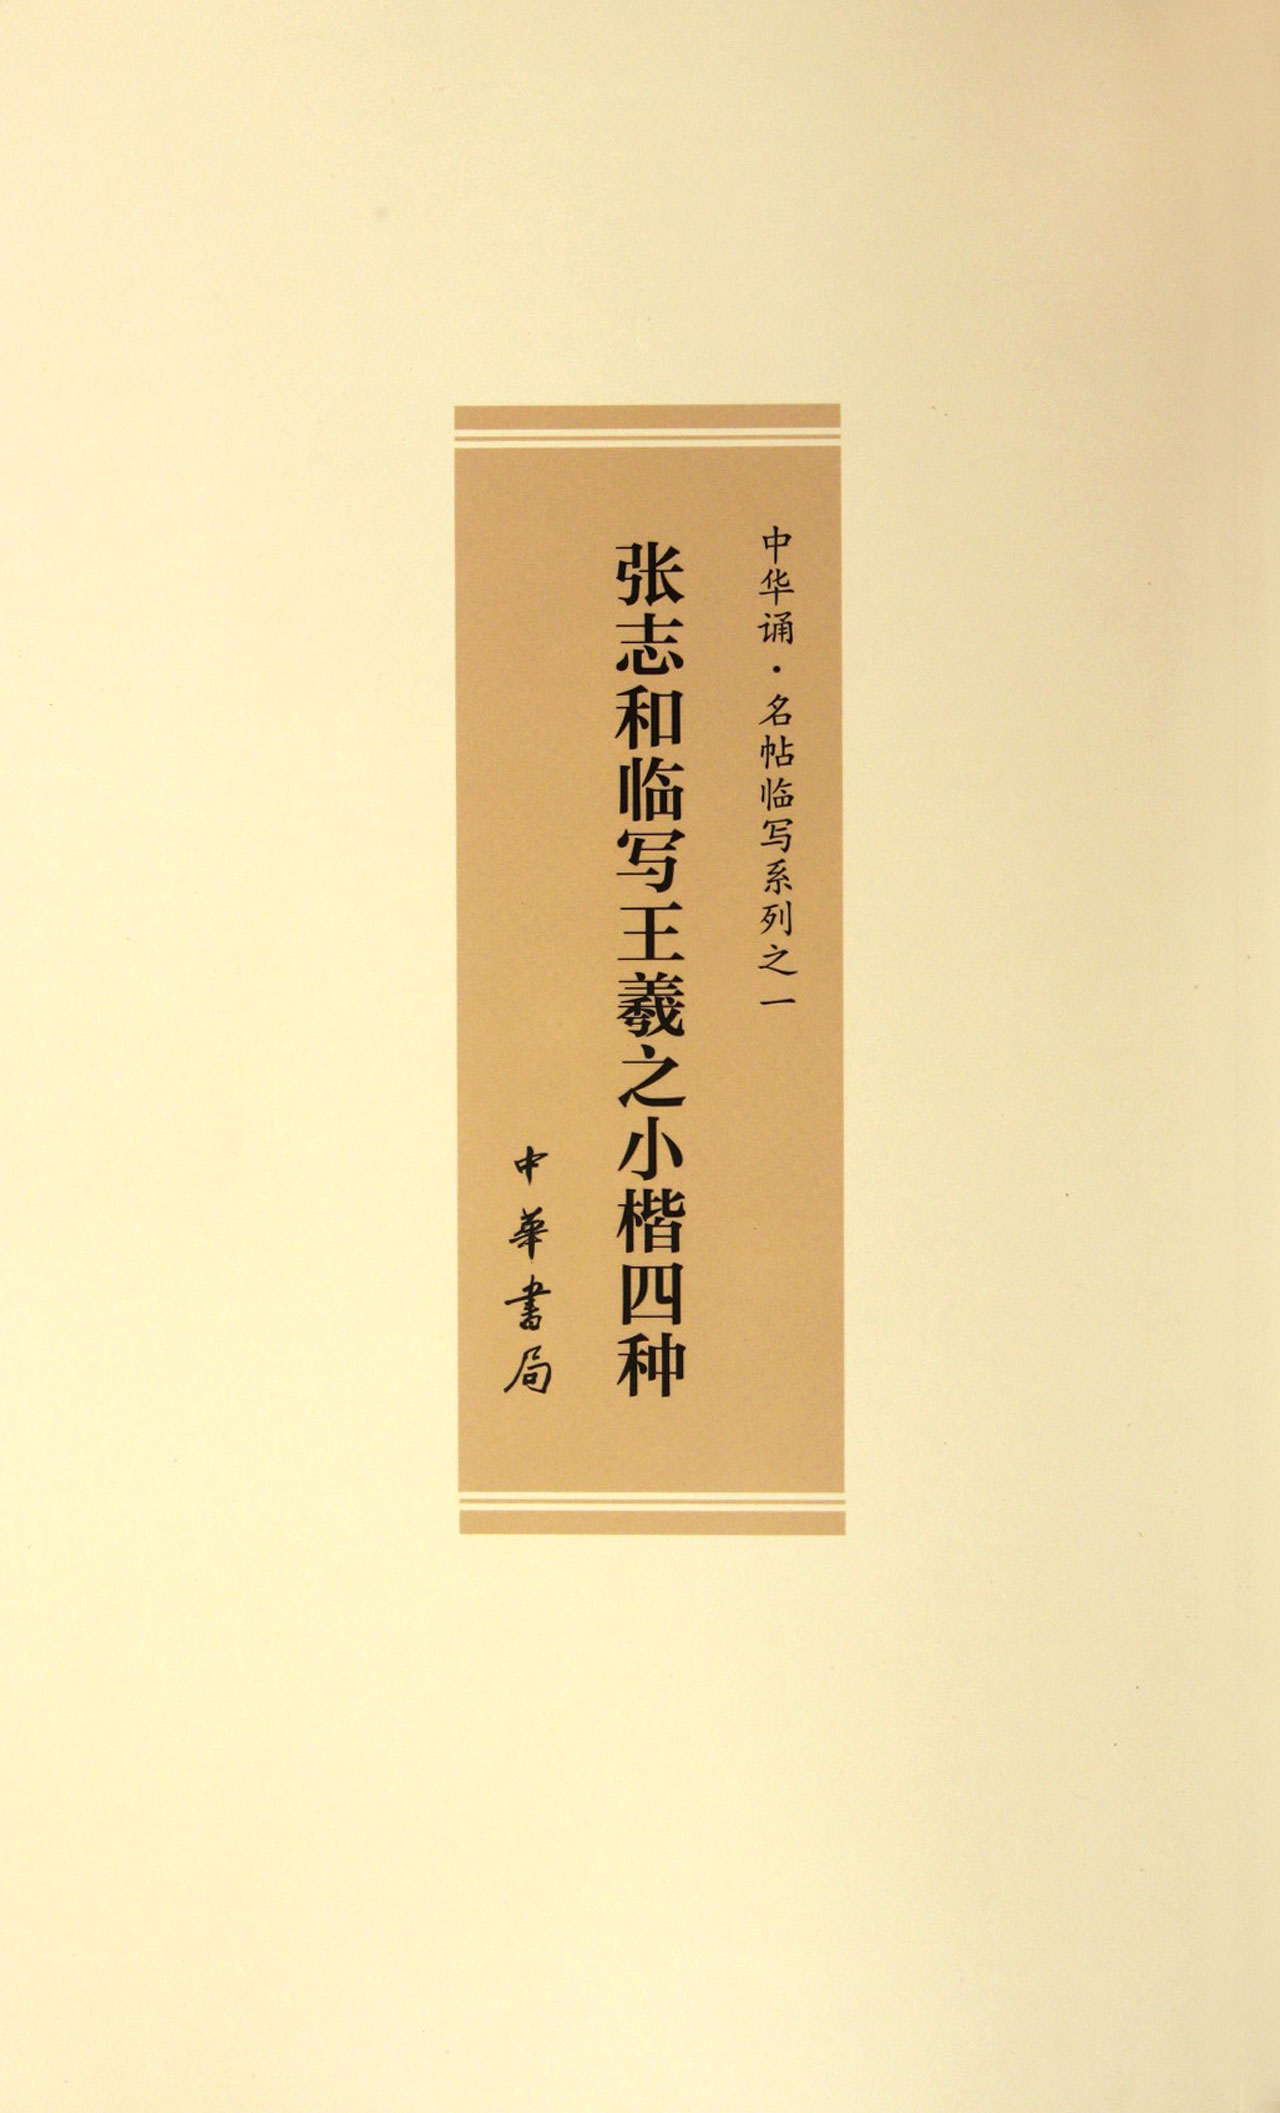 中华诵·名帖临写系列之一
张志和临写王羲之小楷四种
中華書局